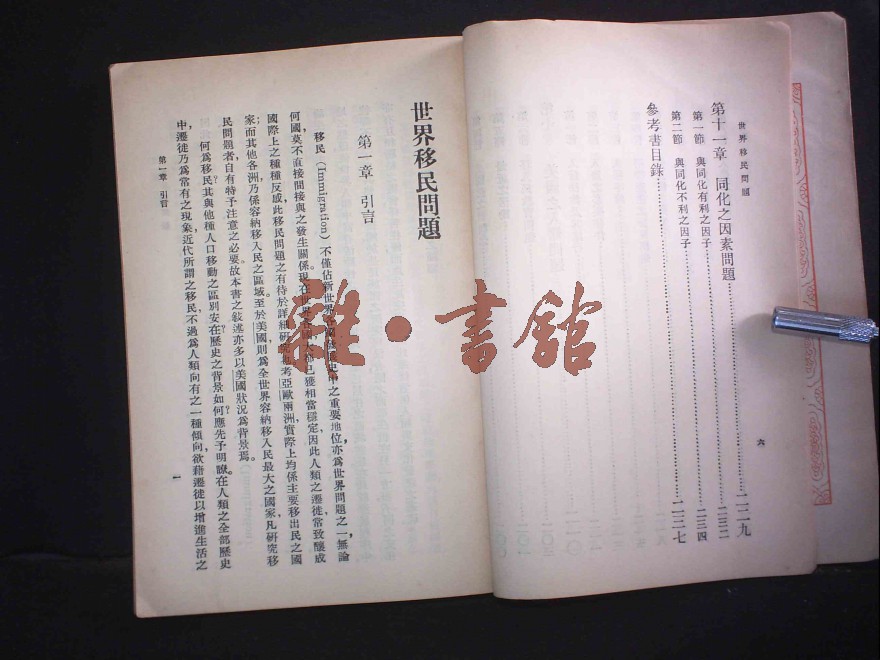 世界移民問題
第十一章　同化之因素問題……二二九
第一節　與同化有利之因子……二三二
第二節　與同化不利之因子……二三四
參考書目錄……二三七
六
世界移民問題
第一章　引言
移民（Immigration）不僅佔新世界之重要地位，亦爲世界問題之一，無論
何國莫不直接間接與之發生關係。現在世界已獲相當穩定，因此人類之遷徙常致釀成
國際上之種種反感，此移民問題之有待於詳細研究也。考亞歐兩洲，實際上均係主要移出民之國
家，而其他各洲乃係容納移入民之區域。至於美國，則爲全世界容納移入民最大之國家，凡研究移
民問題者，自有特予注意之必要。故本書之敍述，亦多以美國狀況爲背景焉。
何爲移民？其與他種人口移動之區別安在？歷史之背景如何？應先予明瞭。在人類之全部歷史
中，遷徙乃爲常有之現象，近代所謂之移民，不過爲人類向有之一種傾向，欲藉遷徙以增進生活之
第一章　引言
一
雜·書館